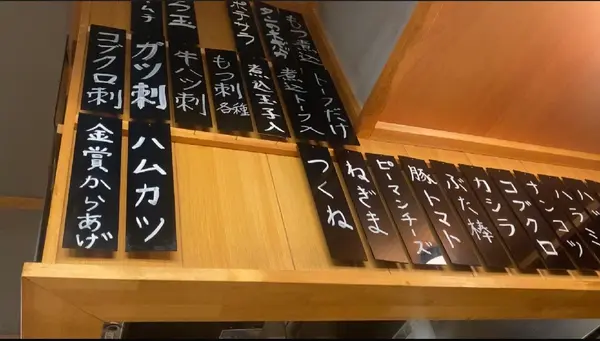 もつ煮込
ポテサラ
トーフだけ
煮込トーフ入
煮込玉子入
もつ刺各種
牛ハツ刺
ガツ刺
コブクロ刺
ハラミ
ナンコツ
コブクロ
カシラ
ぶた棒
豚トマト
ピーマンチーズ
ねぎま
つくね
ハムカツ
金賞からあげ